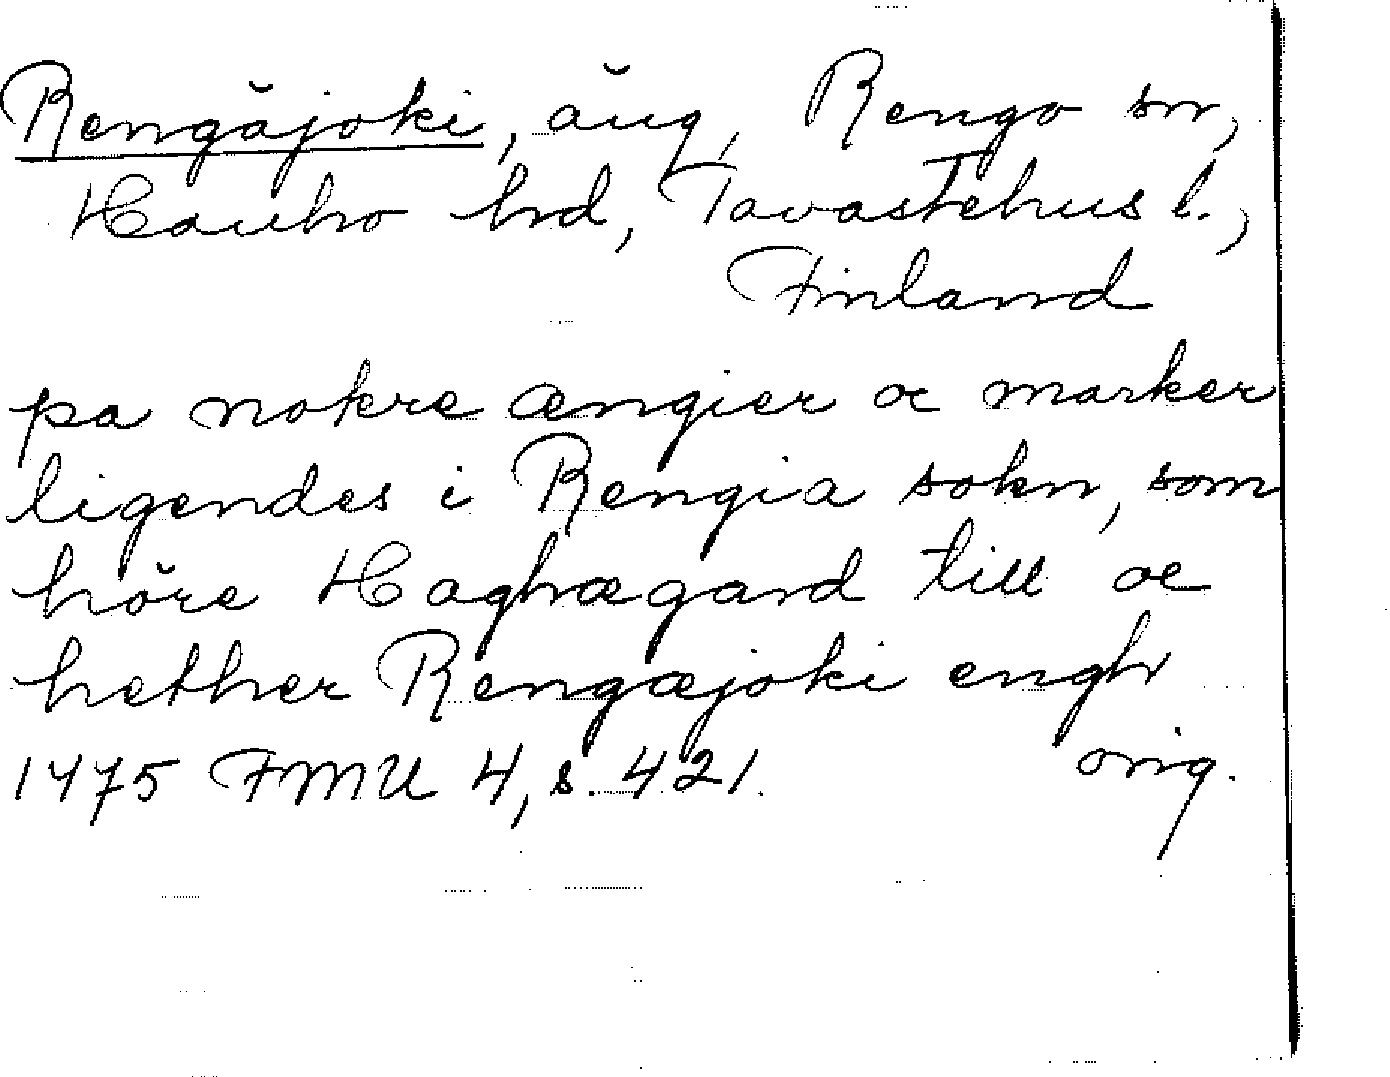 Rengäjoki, äng, Rengo sn,
Hauho hd, Tavastehus l.,
Finland
pa nokre ængier oc marker
ligendes i Rengia sokn, som
höre Haghægard till oc
hether Rengæjoki engh
1475 FMU 4, s. 421. orig.